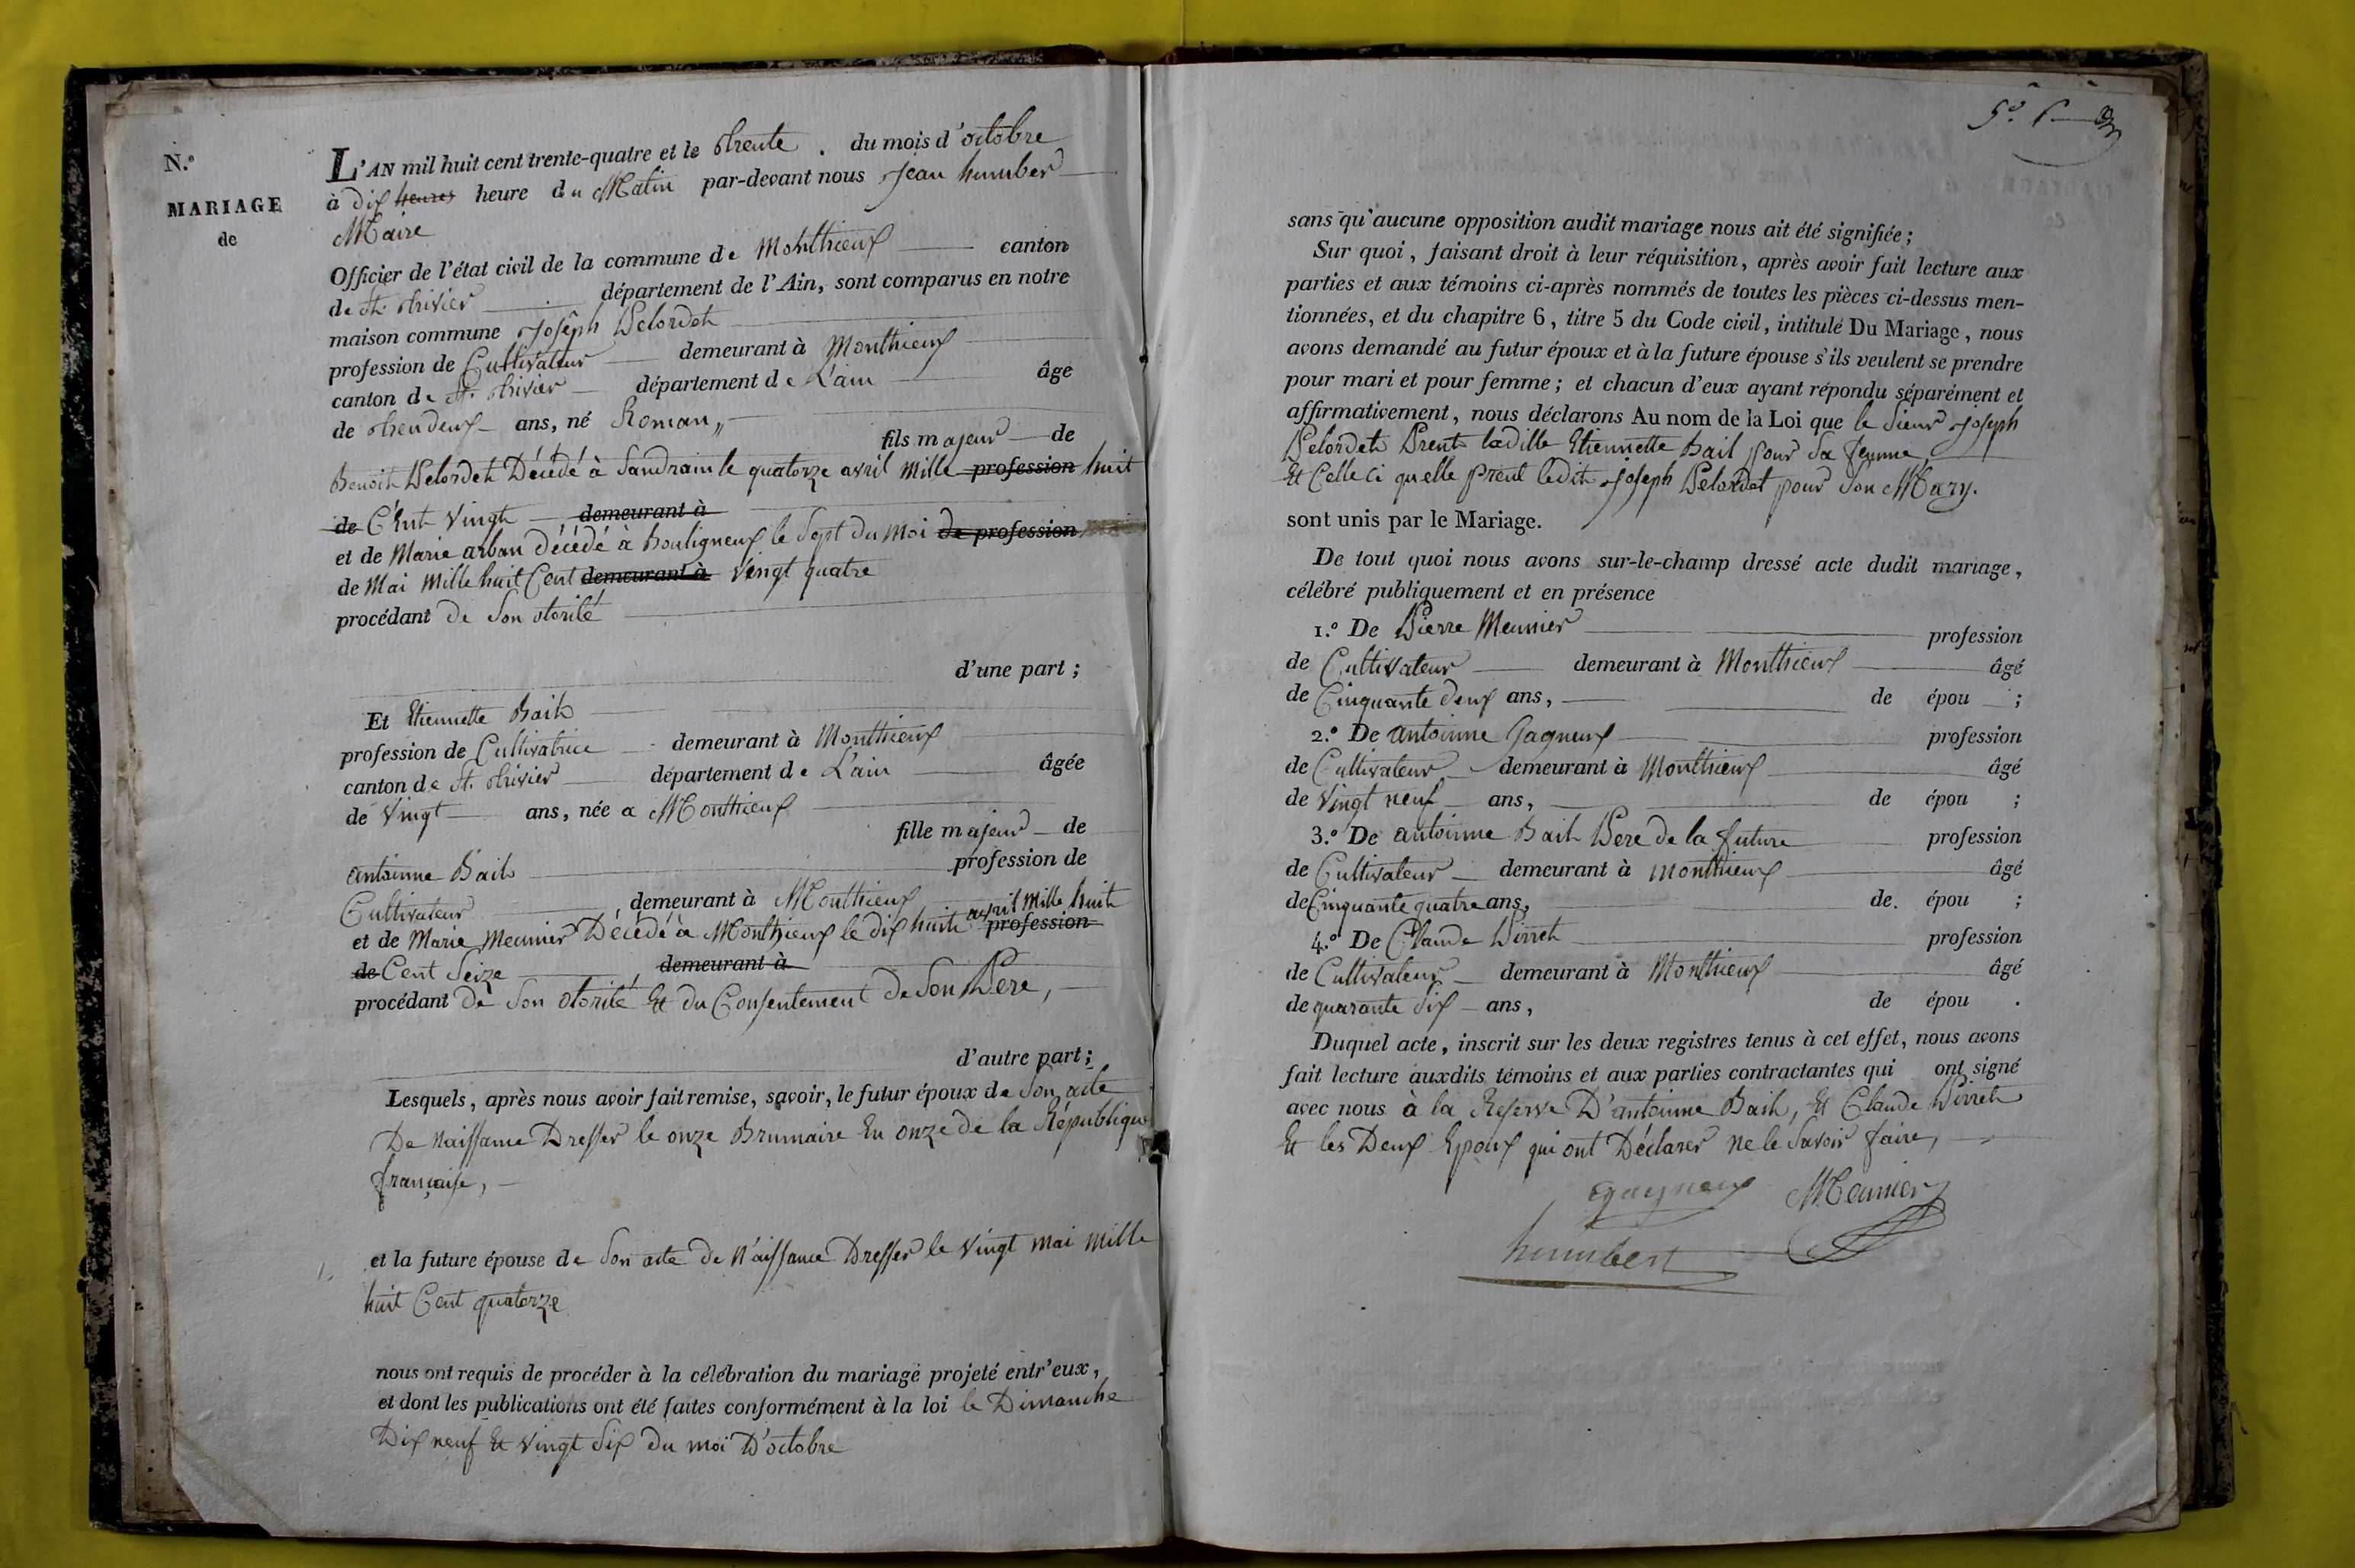 N.º
MARIAGE
de
L'AN mil huit cent trente-quatre et le thrente . du mois d'octobre
à dix heures heure du Matin par-devant nous Jean humber
Maire
Officier de l'état civil de la commune de Monthieux canton
de St. thivier département de l'Ain, sont comparus en notre
maison commune Joseph Pelordet
profession de Cultivateur demeurant à Monthieux
canton de St. thivier département de L'ain âge
de thendeux ans, né Roman,,
fils majeur de
Benoit Pelordet Décédé à Sandrain le quatorze avril Mille profession huit
de Cent Vingt demeurant à
et de Marie arban décédé à Bouligneux le Sept du Moi de profession
de Mai Mille huit Cent demeurant à Vingt quatre
procédant de Son otorité
d'une part ;
Et Etiennette Bait
profession de Cultivatrice demeurant à Monthieux
canton de St. thivier département de L'ain âgée
de Vingt ans, née a Monthieux
fille majeur de
antoinne Bait profession de
Cultivateur demeurant à Monthieux
et de Marie Meunier Décédé à Monthieux le dix huit avril Mille huit profession
de Cent Seize demeurant à
procédant de Son otorité Et du Consentement de Son Pere,
d'autre part ;
Lesquels, après nous avoir fait remise, savoir, le futur époux de Son acte
De Naissance Dresser le onze Brumaire En onze de la République
française,
et la future épouse de Son acte de Naissance Dresser le Vingt Mai Mille
huit Cent quatorze
nous ont requis de procéder à la célébration du mariage projeté entr'eux,
et dont les publications ont été faites conformément à la loi le Dimanche
Dix neuf Et Vingt Six du moi D'octobre
sans qu'aucune opposition audit mariage nous ait été signifiée ;
Sur quoi, faisant droit à leur réquisition, après avoir fait lecture aux
parties et aux témoins ci-après nommés de toutes les pièces ci-dessus men-
tionnées, et du chapitre 6, titre 5 du Code civil, intitulé Du Mariage, nous
avons demandé au futur époux et à la future épouse s'ils veulent se prendre
pour mari et pour femme ; et chacun d'eux ayant répondu séparément et
affirmativement, nous déclarons Au nom de la Loi que le Sieur Joseph
Pelordet Prent ladille Etiennette Bait pour Sa femme,
Et Celle Ci quelle prent ledit Joseph Pelordet pour Son Mary.
sont unis par le Mariage.
De tout quoi nous avons sur-le-champ dressé acte dudit mariage,
célébré publiquement et en présence
1.º De Pierre Meunier profession
de Cultivateur demeurant à Monthieux âgé
de Cinquante deux ans, de épou ;
2.º De antoinne Gagneux profession
de Cultivateur demeurant à Monthieux âgé
de Vingt neuf ans, de épou ;
3.º De antoinne Bait Pere de la future profession
de Cultivateur demeurant à Monthieux âgé
de Cinquante quatre ans, de épou ;
4.º De Claude Pirret profession
de Cultivateur demeurant à Monthieux âgé
de quarante Six ans, de épou .
Duquel acte, inscrit sur les deux registres tenus à cet effet, nous avons
fait lecture auxdits témoins et aux parties contractantes qui ont signé
avec nous à la Reserve D'antoinne Bait, Et Claude Pirret
Et les Deux Epoux qui ont Déclarer ne le Savoir faire,
gagneux Meunier
humbert